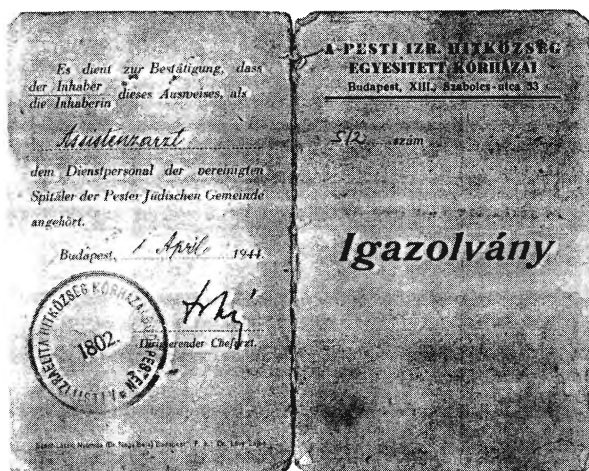 Es dient zur Bestätigung, dass
der Inhaber
die Inhaberin dieses Ausweises, als
Assistenzarzt
dem Dienstpersonal der vereinigten
Spitäler der Pester Jüdischen Gemeinde
angehört.
Budapest, 1 April 1944.
Dirigierender Chefarzt.
PESTI IZRAELITA HITKÖZSÉG KÓRHÁZAI BUDAPESTEN
1802.
A PESTI IZR. HITKÖZSÉG
EGYESITETT KÓRHÁZAI
Budapest, XIII., Szabolcs-utca 33
512 szám
Igazolvány